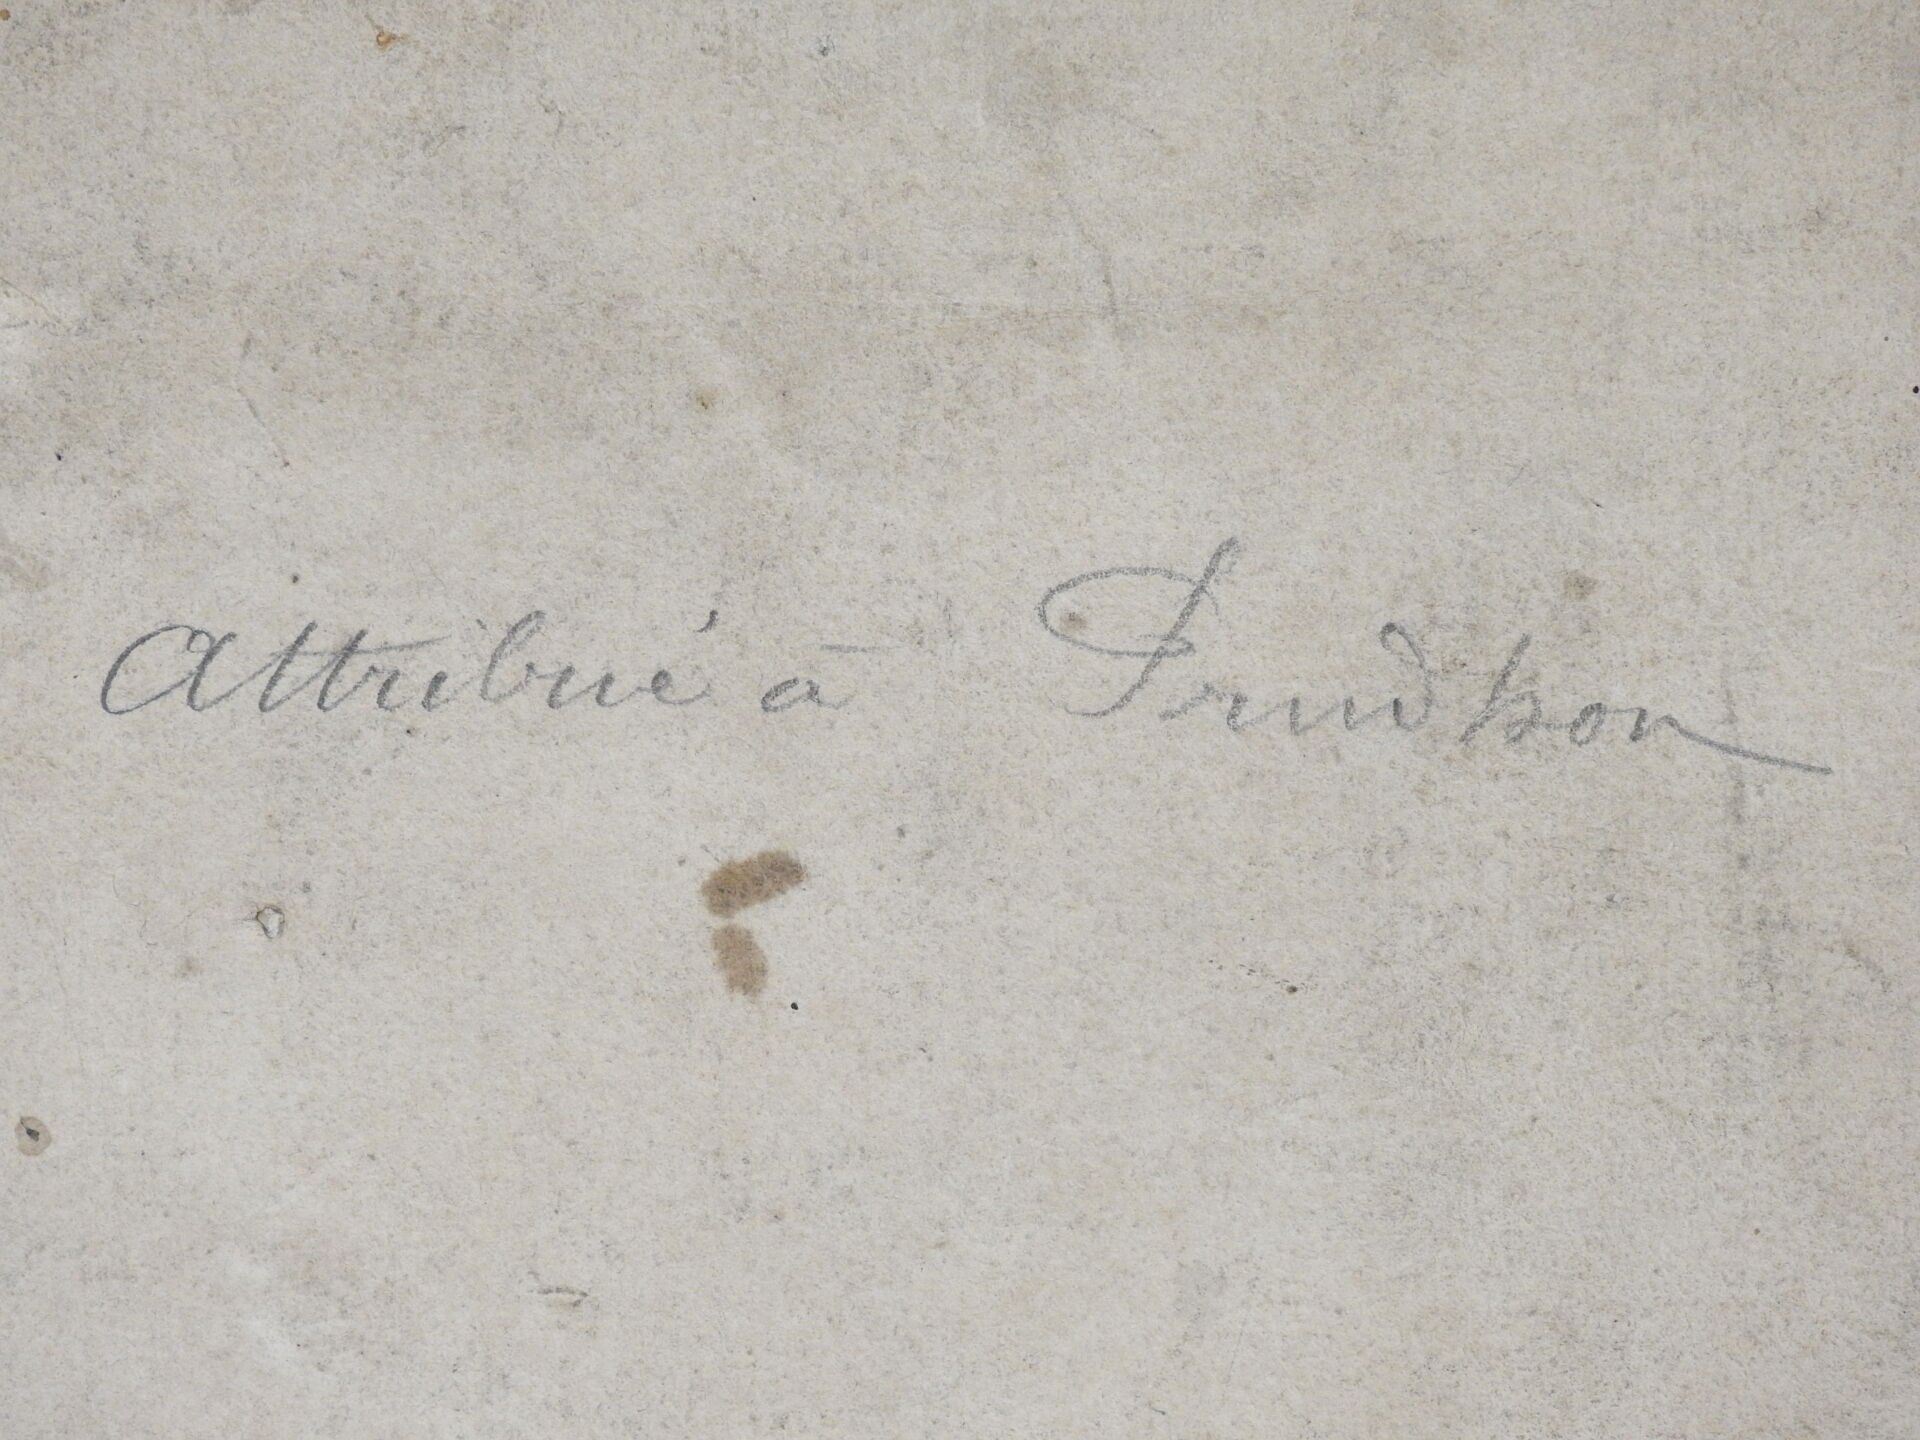 Attribué à Prudhon